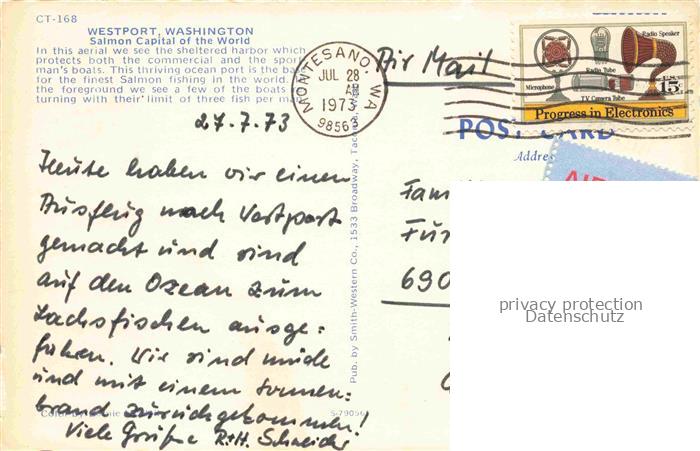 CT-168
WESTPORT, WASHINGTON
Salmon Capital of the World
In this aerial we see the sheltered harbor which
protects both the commercial and the sport
man's boats. This thriving ocean port is the
for the finest Salmon fishing in the world. In
the foreground we see a few of the boats
turning with their limit of three fish per
MONTESANO, WA
JUL 28
AM
1973
98563
Air Mail
Radio Speaker
Radio Tube
Microphone
TV Camera Tube
15c
Progress in Electronics
POST CARD
Address
AIR
27.7.73
Heute haben wir einen
Ausflug nach Vestport
gemacht und sind
auf den Ozean zum
Lachsfischen ausge=
fahren. Wir sind müde
und mit einem Sonnen=
brand zurückgekommen!
Viele Grüße R+H. Schneider
Pub. by Smith-Western Co., 1533 Broadway, Tacoma,
S-79056
Fam
Für
690
privacy protection
Datenschutz